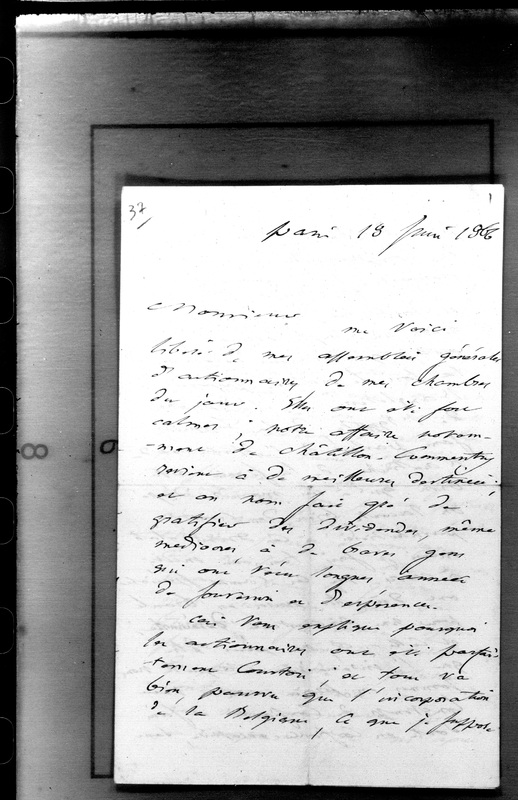 37
paris 18 Juin 1866
Monsieur
me voici
libéré de mes assemblées générales
d'actionnaires de mes chambres
du jour. Elles ont été fort
calmes; notre affaire notam-
-ment de Châtillon-Commentry
revient à de meilleures destinées;
et on nous fait gré de
gratifier des dividendes, même
médiocres à de braves gens
qui ont vécu longues années
de souvenir et d'espérance.
Ceci vous explique pourquoi
les actionnaires ont été parfai-
tement courtois; et tout va
bien, pourvu que l'incorporation
de la Belgique, ce que je suppose
8